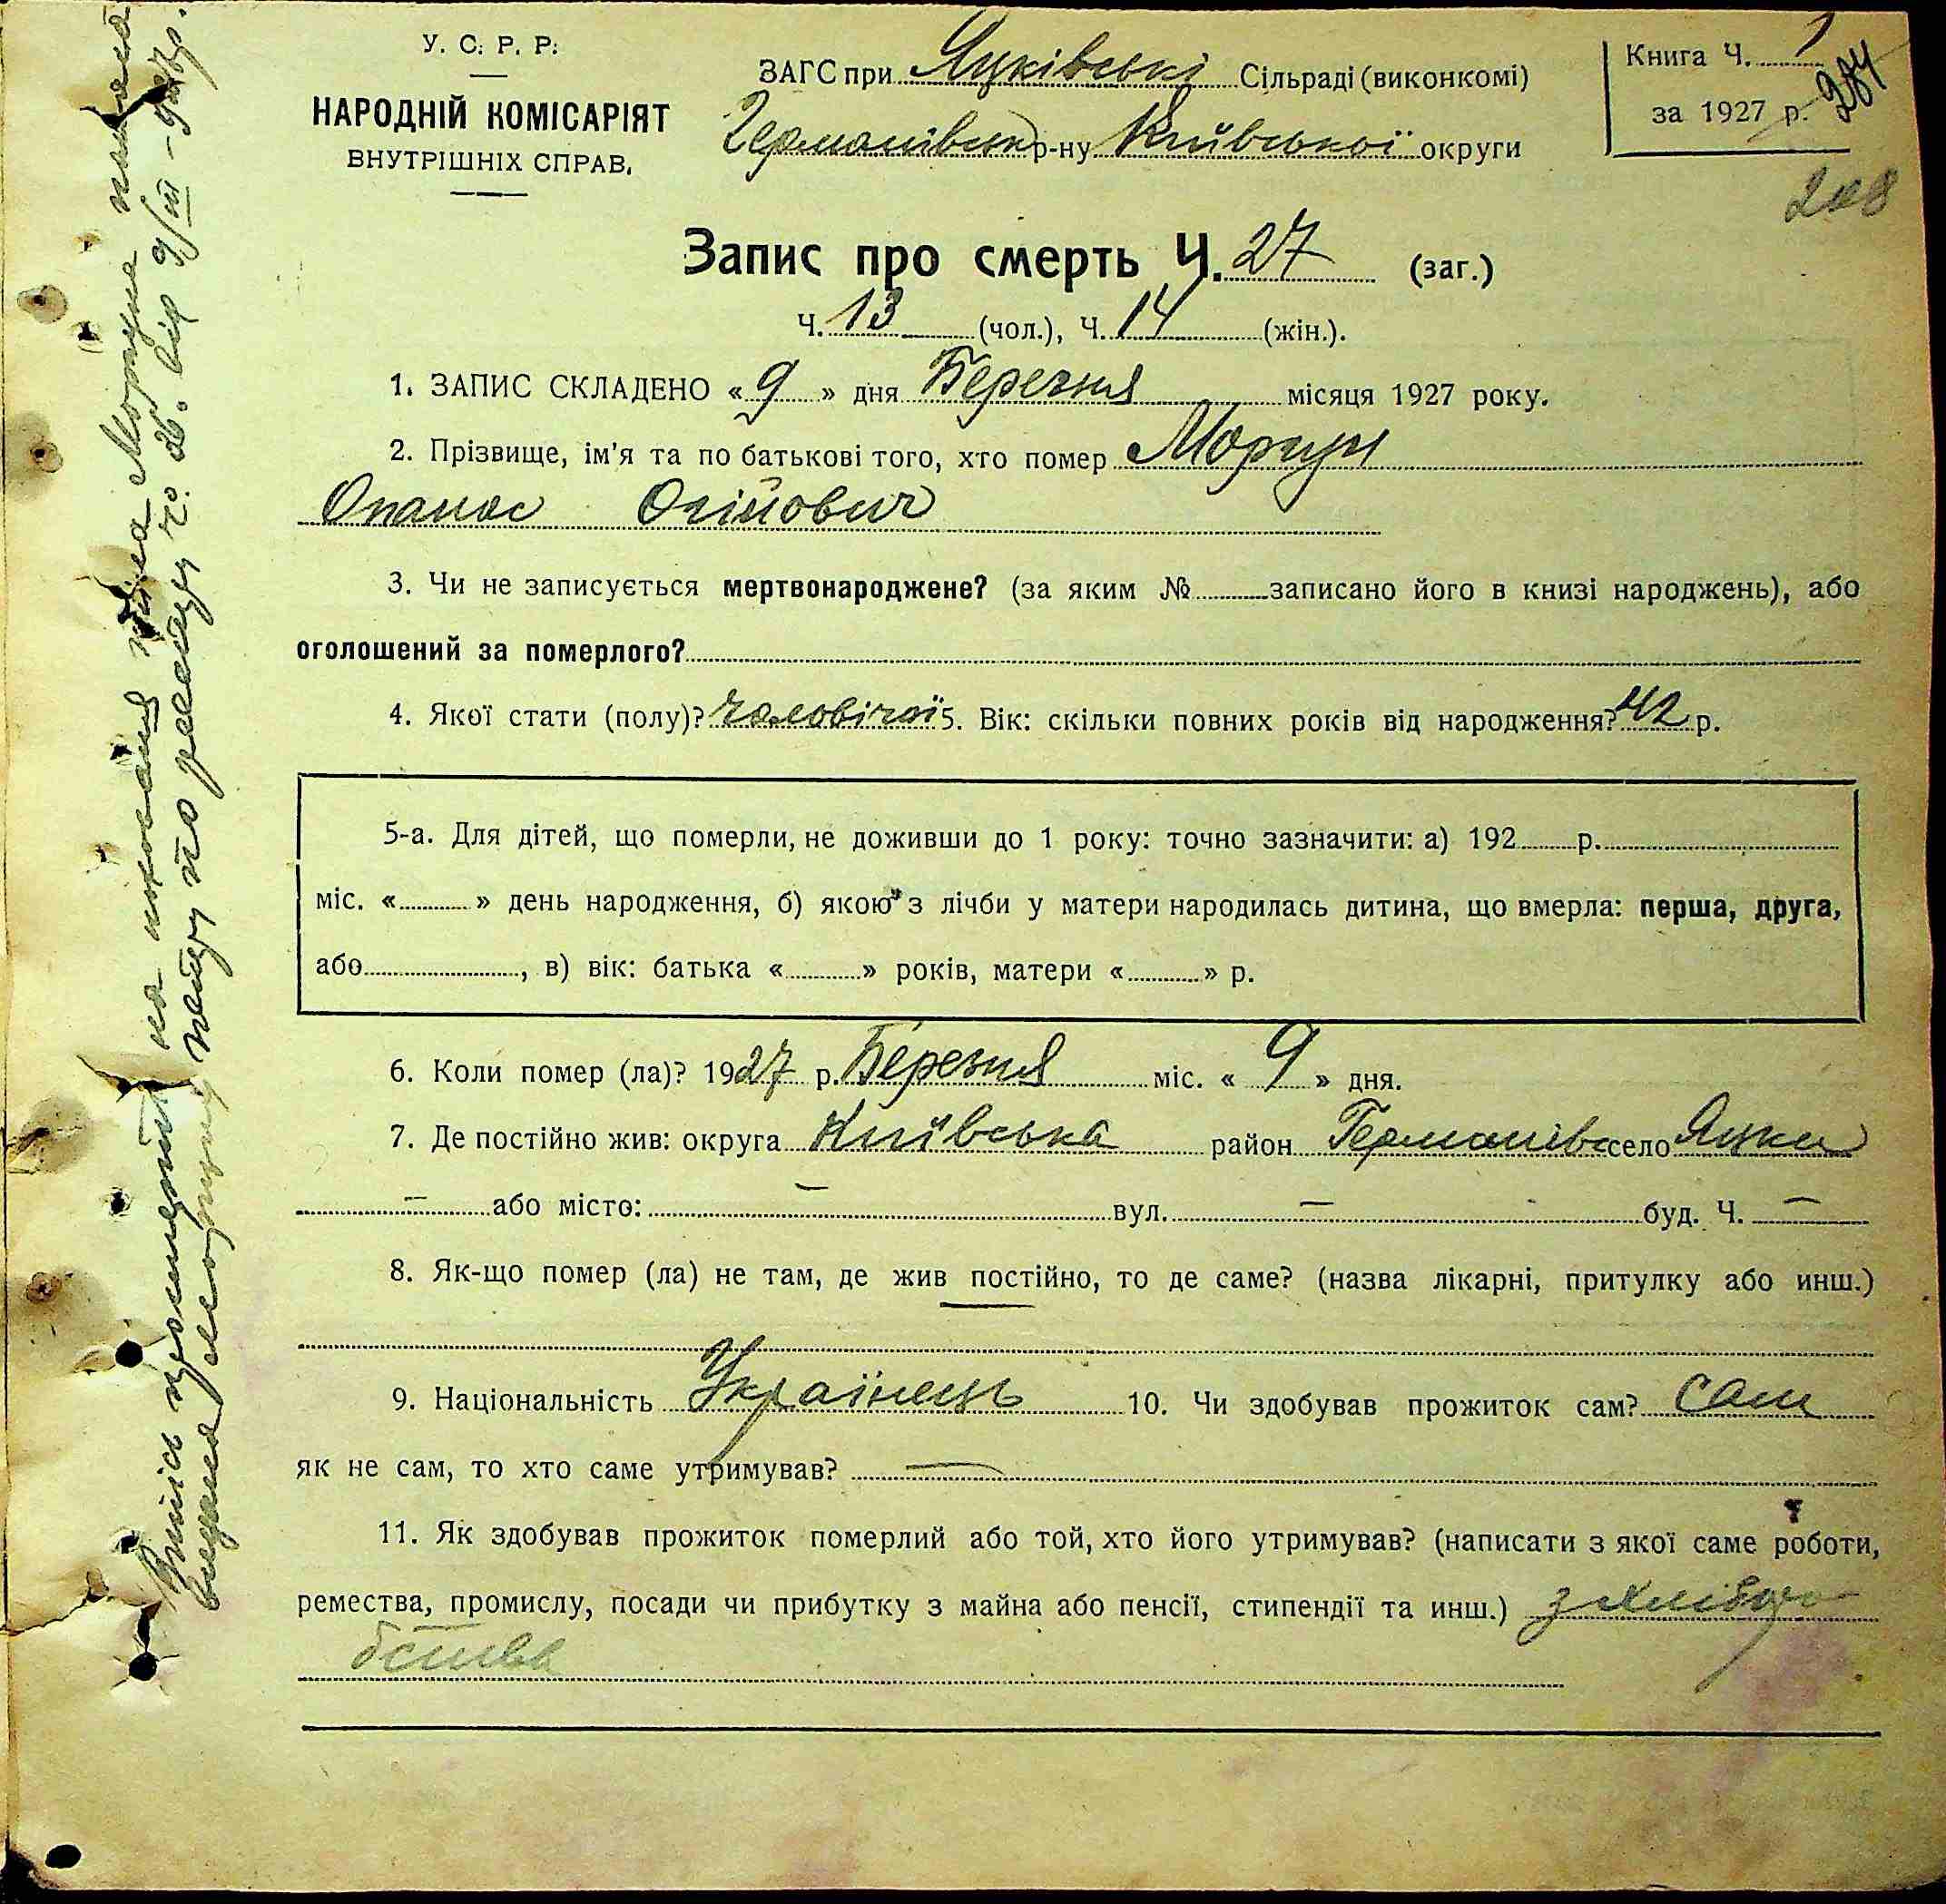 У. С. Р. Р.
НАРОДНІЙ КОМІСАРІЯТ
ВНУТРІШНІХ СПРАВ.
ЗАГС при Яцківські Сільраді (виконкомі)
Германівськ р-ну Київської округи
Книга Ч. 1
за 1927 р.
284
208
Запис про смерть Ч. 27 (заг.)
Ч. 13 (чол.), Ч. 14 (жін.).
1. ЗАПИС СКЛАДЕНО « 9 » дня Березня місяця 1927 року.
2. Прізвище, ім'я та по батькові того, хто помер Моргун
Опанас Огійович
3. Чи не записується мертвонароджене? (за яким № записано його в книзі народжень), або
оголошений за померлого?
4. Якої стати (полу)? чоловічої 5. Вік: скільки повних років від народження? 42 р.
5-а. Для дітей, що померли, не доживши до 1 року: точно зазначити: а) 192 р.
міс. « » день народження, б) якою з лічби у матери народилась дитина, що вмерла: перша, друга,
або , в) вік: батька « » років, матери « » р.
6. Коли помер (ла)? 1927 р. Березня міс. « 9 » дня.
7. Де постійно жив: округа Київська район Германівс село Яцки
— або місто: — вул. — буд. Ч. —
8. Як-що помер (ла) не там, де жив постійно, то де саме? (назва лікарні, притулку або инш.)
9. Національність Українець 10. Чи здобував прожиток сам? сам
як не сам, то хто саме утримував? —
11. Як здобував прожиток померлий або той, хто його утримував? (написати з якої саме роботи,
ремества, промислу, посади чи прибутку з майна або пенсії, стипендії та инш.) з хлібо